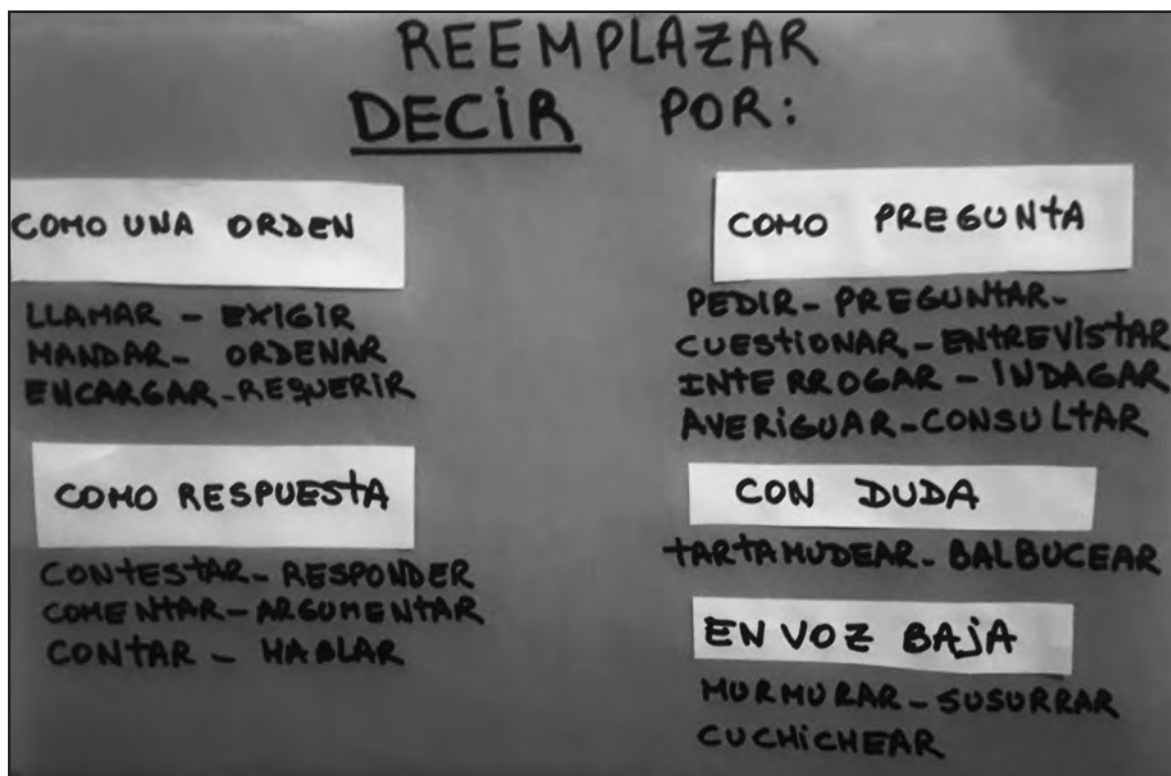 REEMPLAZAR
DECIR POR:
COMO UNA ORDEN
LLAMAR - EXIGIR
MANDAR- ORDENAR
ENCARGAR-REQUERIR
COMO RESPUESTA
CONTESTAR- RESPONDER
COMENTAR-ARGUMENTAR
CONTAR - HABLAR
COMO PREGUNTA
PEDIR- PREGUNTAR-
CUESTIONAR-ENTREVISTAR
INTERROGAR - INDAGAR
AVERIGUAR-CONSULTAR
CON DUDA
TARTAMUDEAR- BALBUCEAR
EN VOZ BAJA
MURMURAR- SUSURRAR
CUCHICHEAR